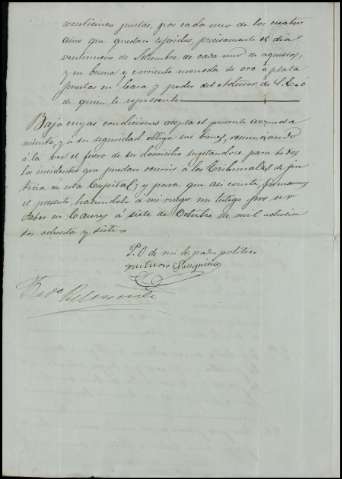 veinticinco pesetas, por cada uno de los cuatro
años que quedan referidos, precisamente el dia
veintinueve de Setiembre de cada uno de aquellos,
y en buena y corriente moneda de oro ó plata
puestas en casa y poder del Señor de S. E. ó
de quien le represente
Bajo cuyas condiciones acepta el presente arrenda
miento, y á su seguridad obliga sus bienes, renunciando
á la vez el fuero de su domicilio sujetandose para todos
los incidentes que puedan ocurrir á los Tribunales de jus
ticia en esta Capital; y para que asi conste firmamos
el presente haciendolo á mi ruego un testigo por no
saber en Caceres á siete de Octubre de mil ochocien
tos ochenta y siete
P. O. de mi padre politico